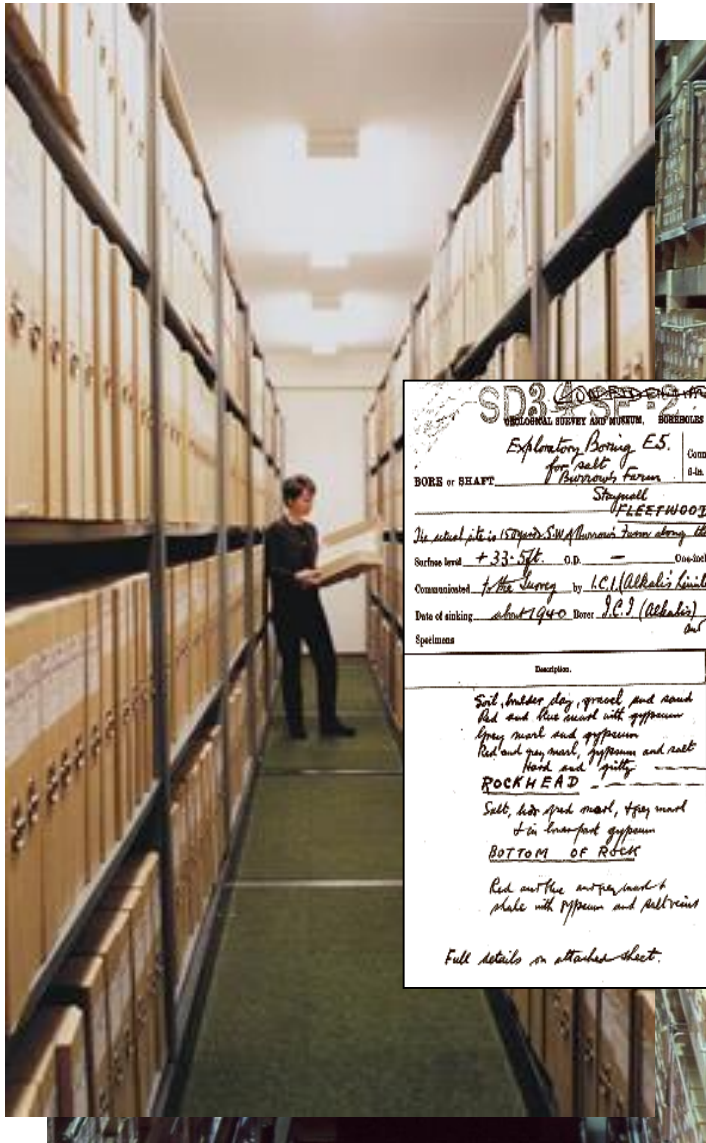 SD3 SE 2
GEOLOGICAL SURVEY AND MUSEUM, BOREHOLES
Exploratory Boring E5.
for salt
BORE or SHAFT Burrow's Farm
6-in.
Staynall
FLEETWOOD
The actual site is 150 yards S.W. of Burrow's Farm along the
Surface level +33.5ft. O.D. — One-inch
Communicated to the Survey by I.C.I. (Alkalis)
Date of sinking about 1940 Borer I.C.I (Alkalis)
and
Specimens
Description.
Soil, boulder clay, gravel and sand
Red and blue marl with gypsum
Grey marl and gypsum
Red and grey marl, gypsum and salt
Hard and gritty
ROCKHEAD
Salt, red marl, grey marl
& in lower part gypsum
BOTTOM OF ROCK
Red and blue and grey marl &
shale with gypsum and salt veins
Full details on attached sheet.